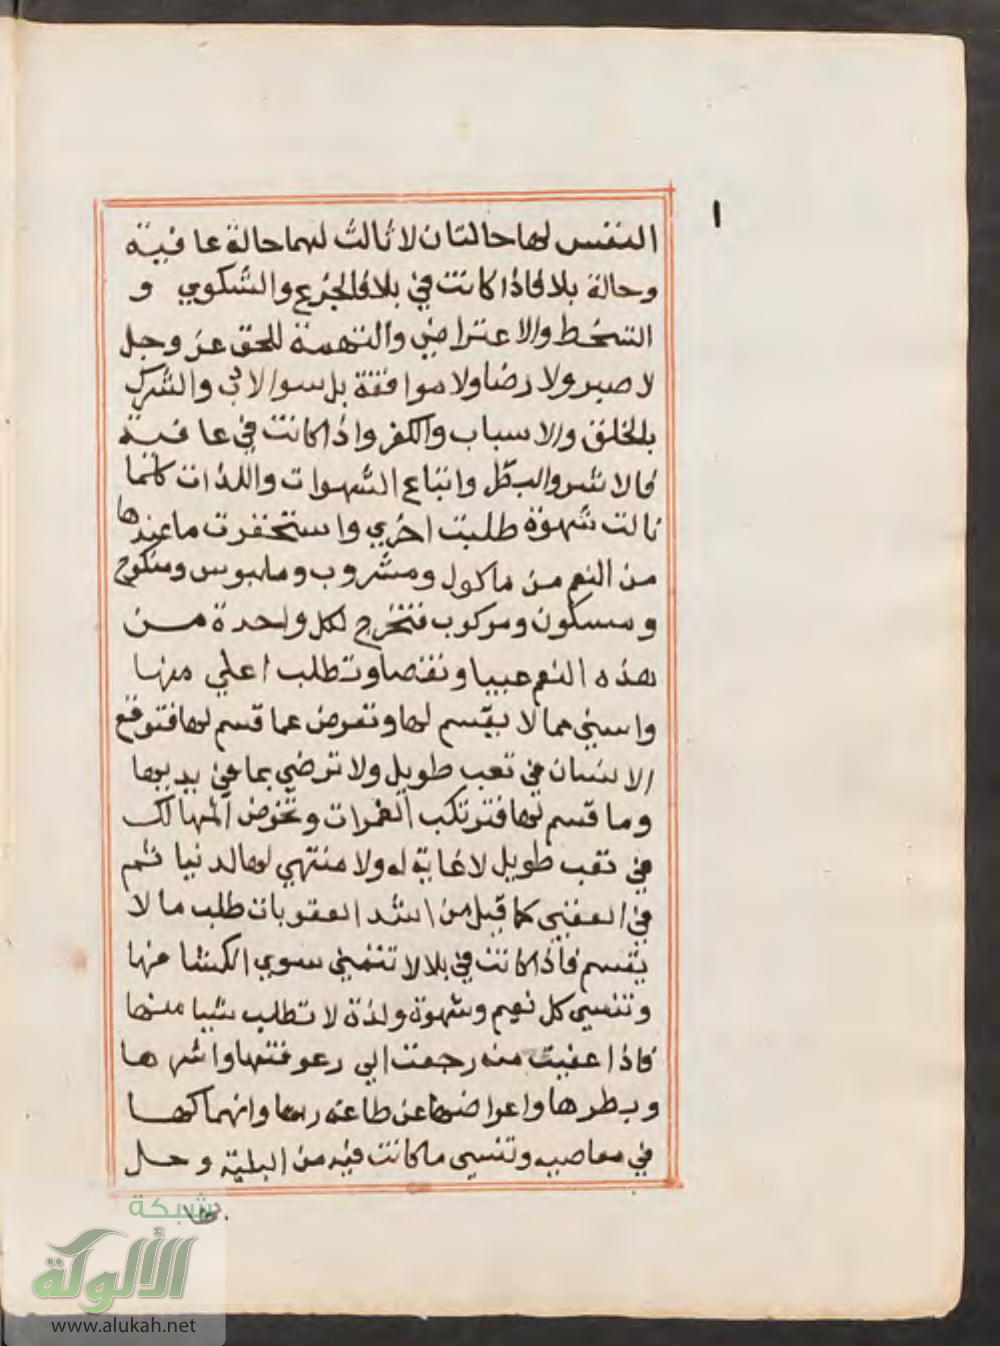 ١
النفس لها حالتان لا ثالث لهما حالة عافية
وحالة بلاء فاذا كانت في بلاء فالجزع والشكوي و
التسخط والاعتراض والتهمة للحق عز وجل
لا صبر ولا رضا ولا موافقة بل سوالادب والشرك
بالخلق والاسباب والكفر واذا كانت في عافية
فالاشر والبطر واتباع الشهوات واللذات كلما
نالت شهوة طلبت اخري واستحقرت ما عندها
من النعم من ماكول ومشروب وملبوس ومنكوح
ومسكون ومركوب فتخرج لكل واحدة من
هذه النعم عيبا ونقصا وتطلب اعلي منها
واسني مما لا يقسم لها وتعرض عما قسم لها فتوقع
الانسان في تعب طويل ولا ترضي بما في يديها
وما قسم لها فترتكب الغمرات وتخوض المهالك
في تعب طويل لا غاية له ولا منتهي لها الدنيا ثم
في العقبي كما قيل من اشد العقوبات طلب ما لا
يقسم فاذا كانت في بلا لا تتمني سوي الكشفا منها
وتنسي كل نعيم وشهوة ولذة لا تطلب شيا منها
فاذا عفيت منه رجعت الي رعونتها واشرها
وبطرها واعراضها عن طاعة ربها وانهماكها
في معاصيه وتنسي ما كانت فيه من البلية وحل
شبكة
الألوكة
www.alukah.net